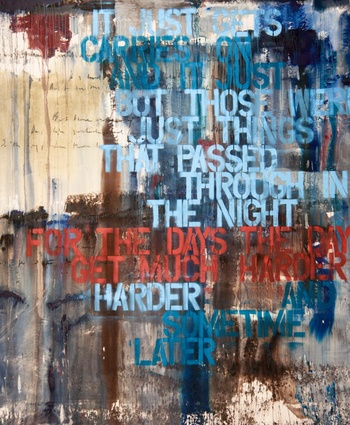 IT JUST GETS
CARRIED ON
AND IT JUST
BUT THOSE WERE
JUST THINGS
THAT PASSED
THROUGH IN
THE NIGHT
FOR THE DAYS THE DAY
GET MUCH HARDER
HARDER AND
SOMETIME
LATER